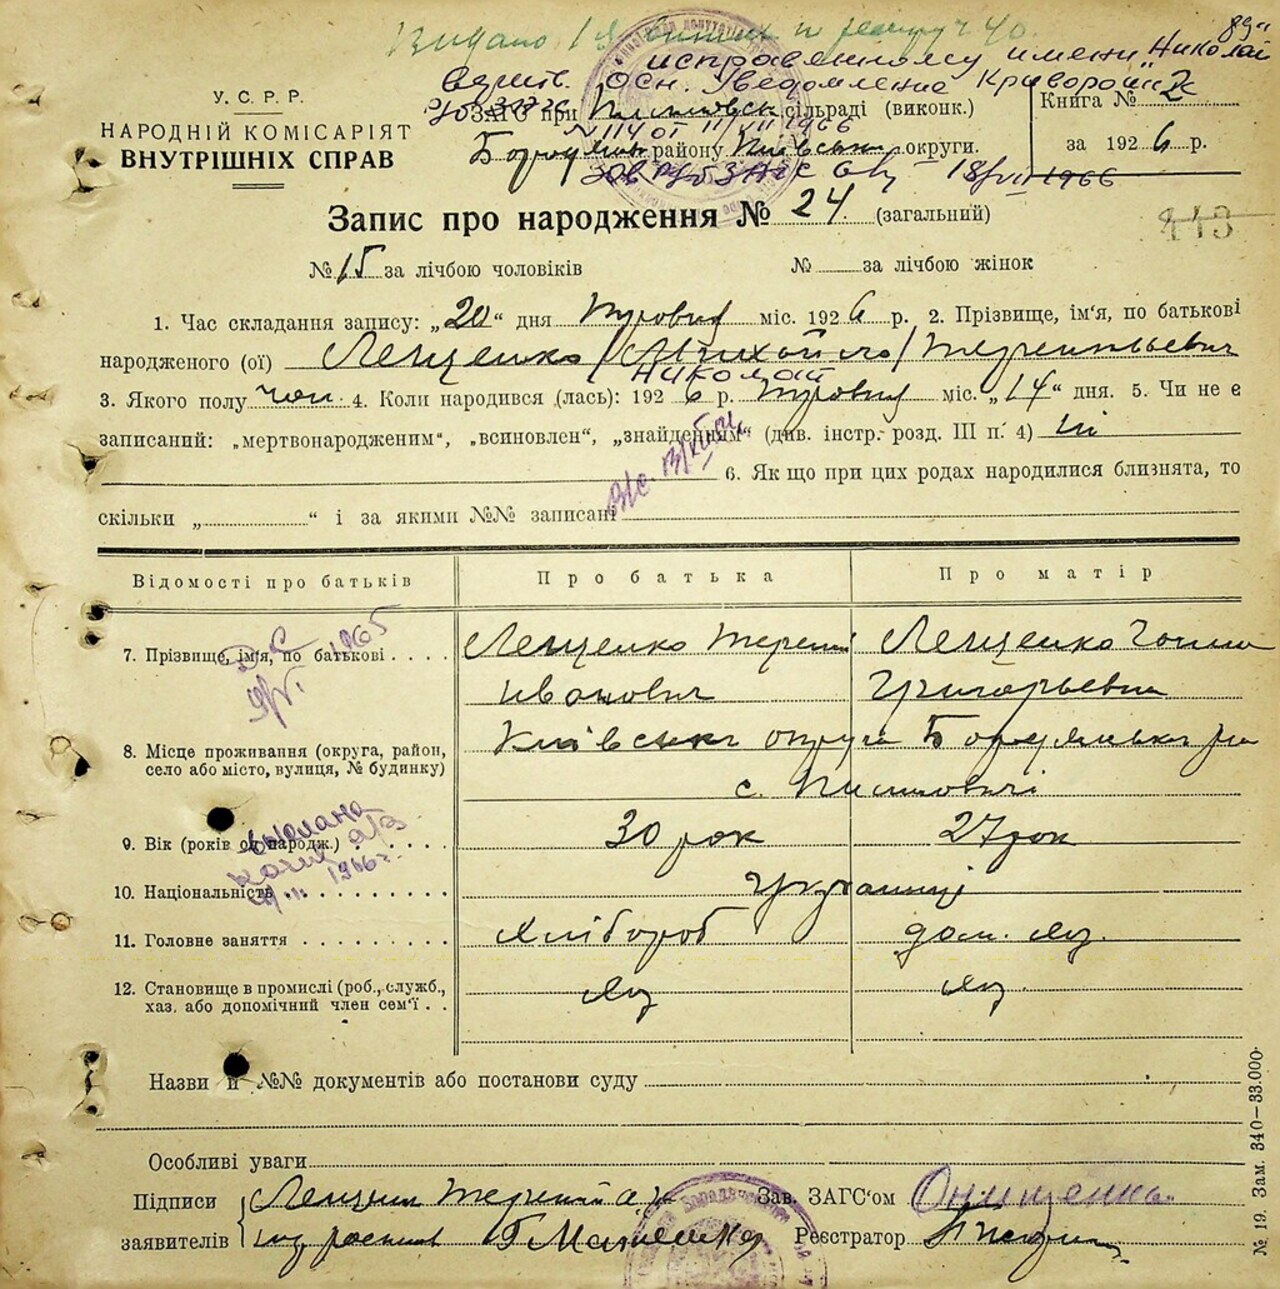 исправленному имени „Николай"
У. С. Р. Р.
НАРОДНІЙ КОМІСАРІЯТ
ВНУТРІШНІХ СПРАВ
ЗАГС при сільраді (виконк.)
№ 114 от 11/VII 1966
району Київськ округи.
18/VII 1966
Книга № 2
за 1926 р.
Запис про народження № 24 (загальний)
443
№ 15 за лічбою чоловіків № за лічбою жінок
1. Час складання запису: „20“ дня міс. 1926 р. 2. Прізвище, ім'я, по батькові
народженого (ої) Лещенко /Михайло/ Терентьевич
Николай
3. Якого полу чол. 4. Коли народився (лась): 1926 р. міс. „14“ дня. 5. Чи не є
записаний: „мертвонародженим“, „всиновлен“, „знайденим“ (див. інстр. розд. III п. 4) ні
6. Як що при цих родах народилися близнята, то
скільки „ “ і за якими №№ записані
Відомості про батьків Про батька Про матір
1965
7. Прізвище, ім'я, по батькові . . . . Лещенко Терентій Лещенко
Иванович Григорьевна
8. Місце проживання (округа, район,
село або місто, вулиця, № будинку)
Київська округа Бородянська р-н
с. Пилиповичі
9. Вік (років од народж.) . . . . . . 30 рок 27 рок
выслана
1966 г.
10. Національність . . . . . . . . . українці
11. Головне заняття . . . . . . . . . Хлібороб дом. хаз.
12. Становище в промислі (роб., служб.,
хаз. або допомічний член сем'ї . . хаз хаз.
Назви й №№ документів або постанови суду
Особливі уваги
Підписи
заявителів
Лещенко Терентій
Зав. ЗАГС'ом Онищенко
Реєстратор
№ 19. Зам. 340—33.000